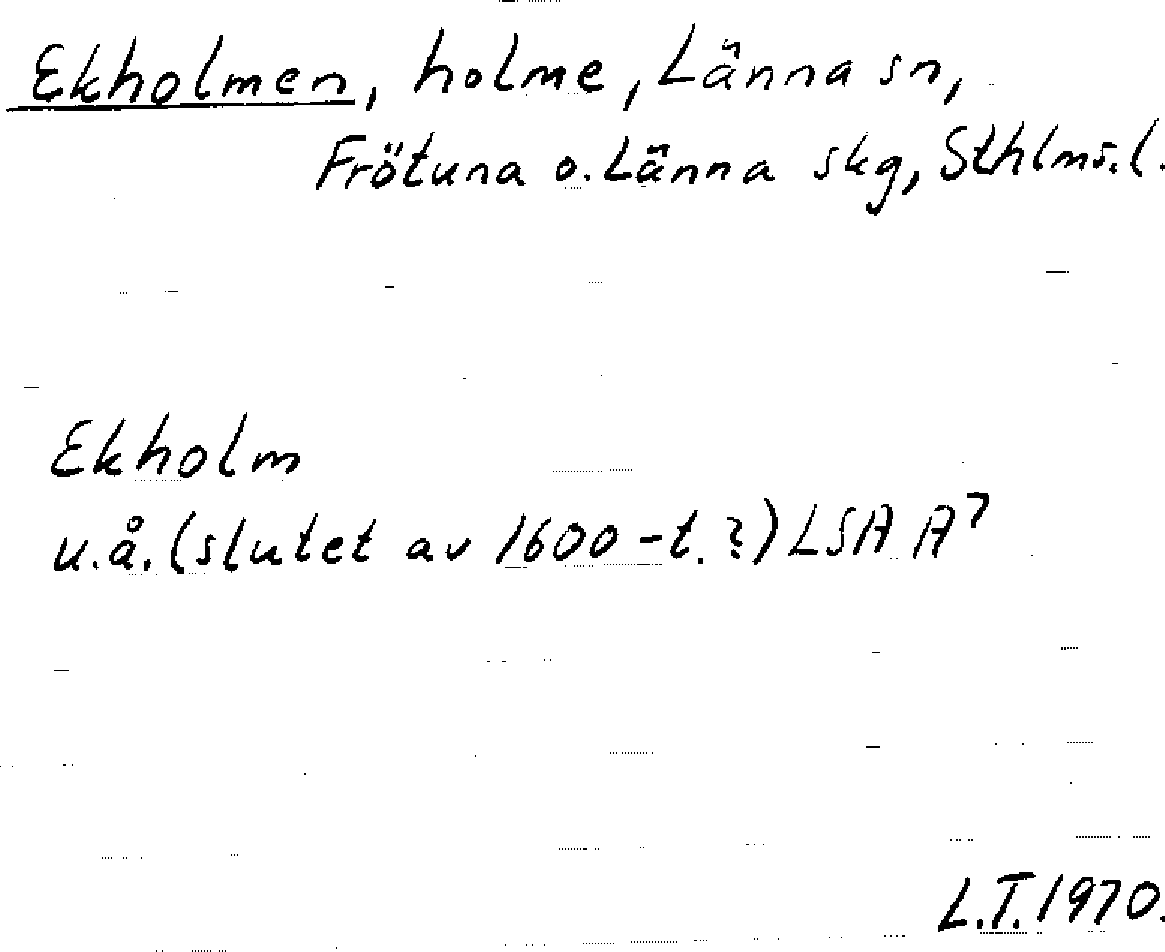 Ekholmen, holme, Länna sn,
Frötuna o. Länna skg, Sthlms. l.
Ekholm
u.å. (slutet av 1600-t.?) LSA A⁷
L.T. 1970.